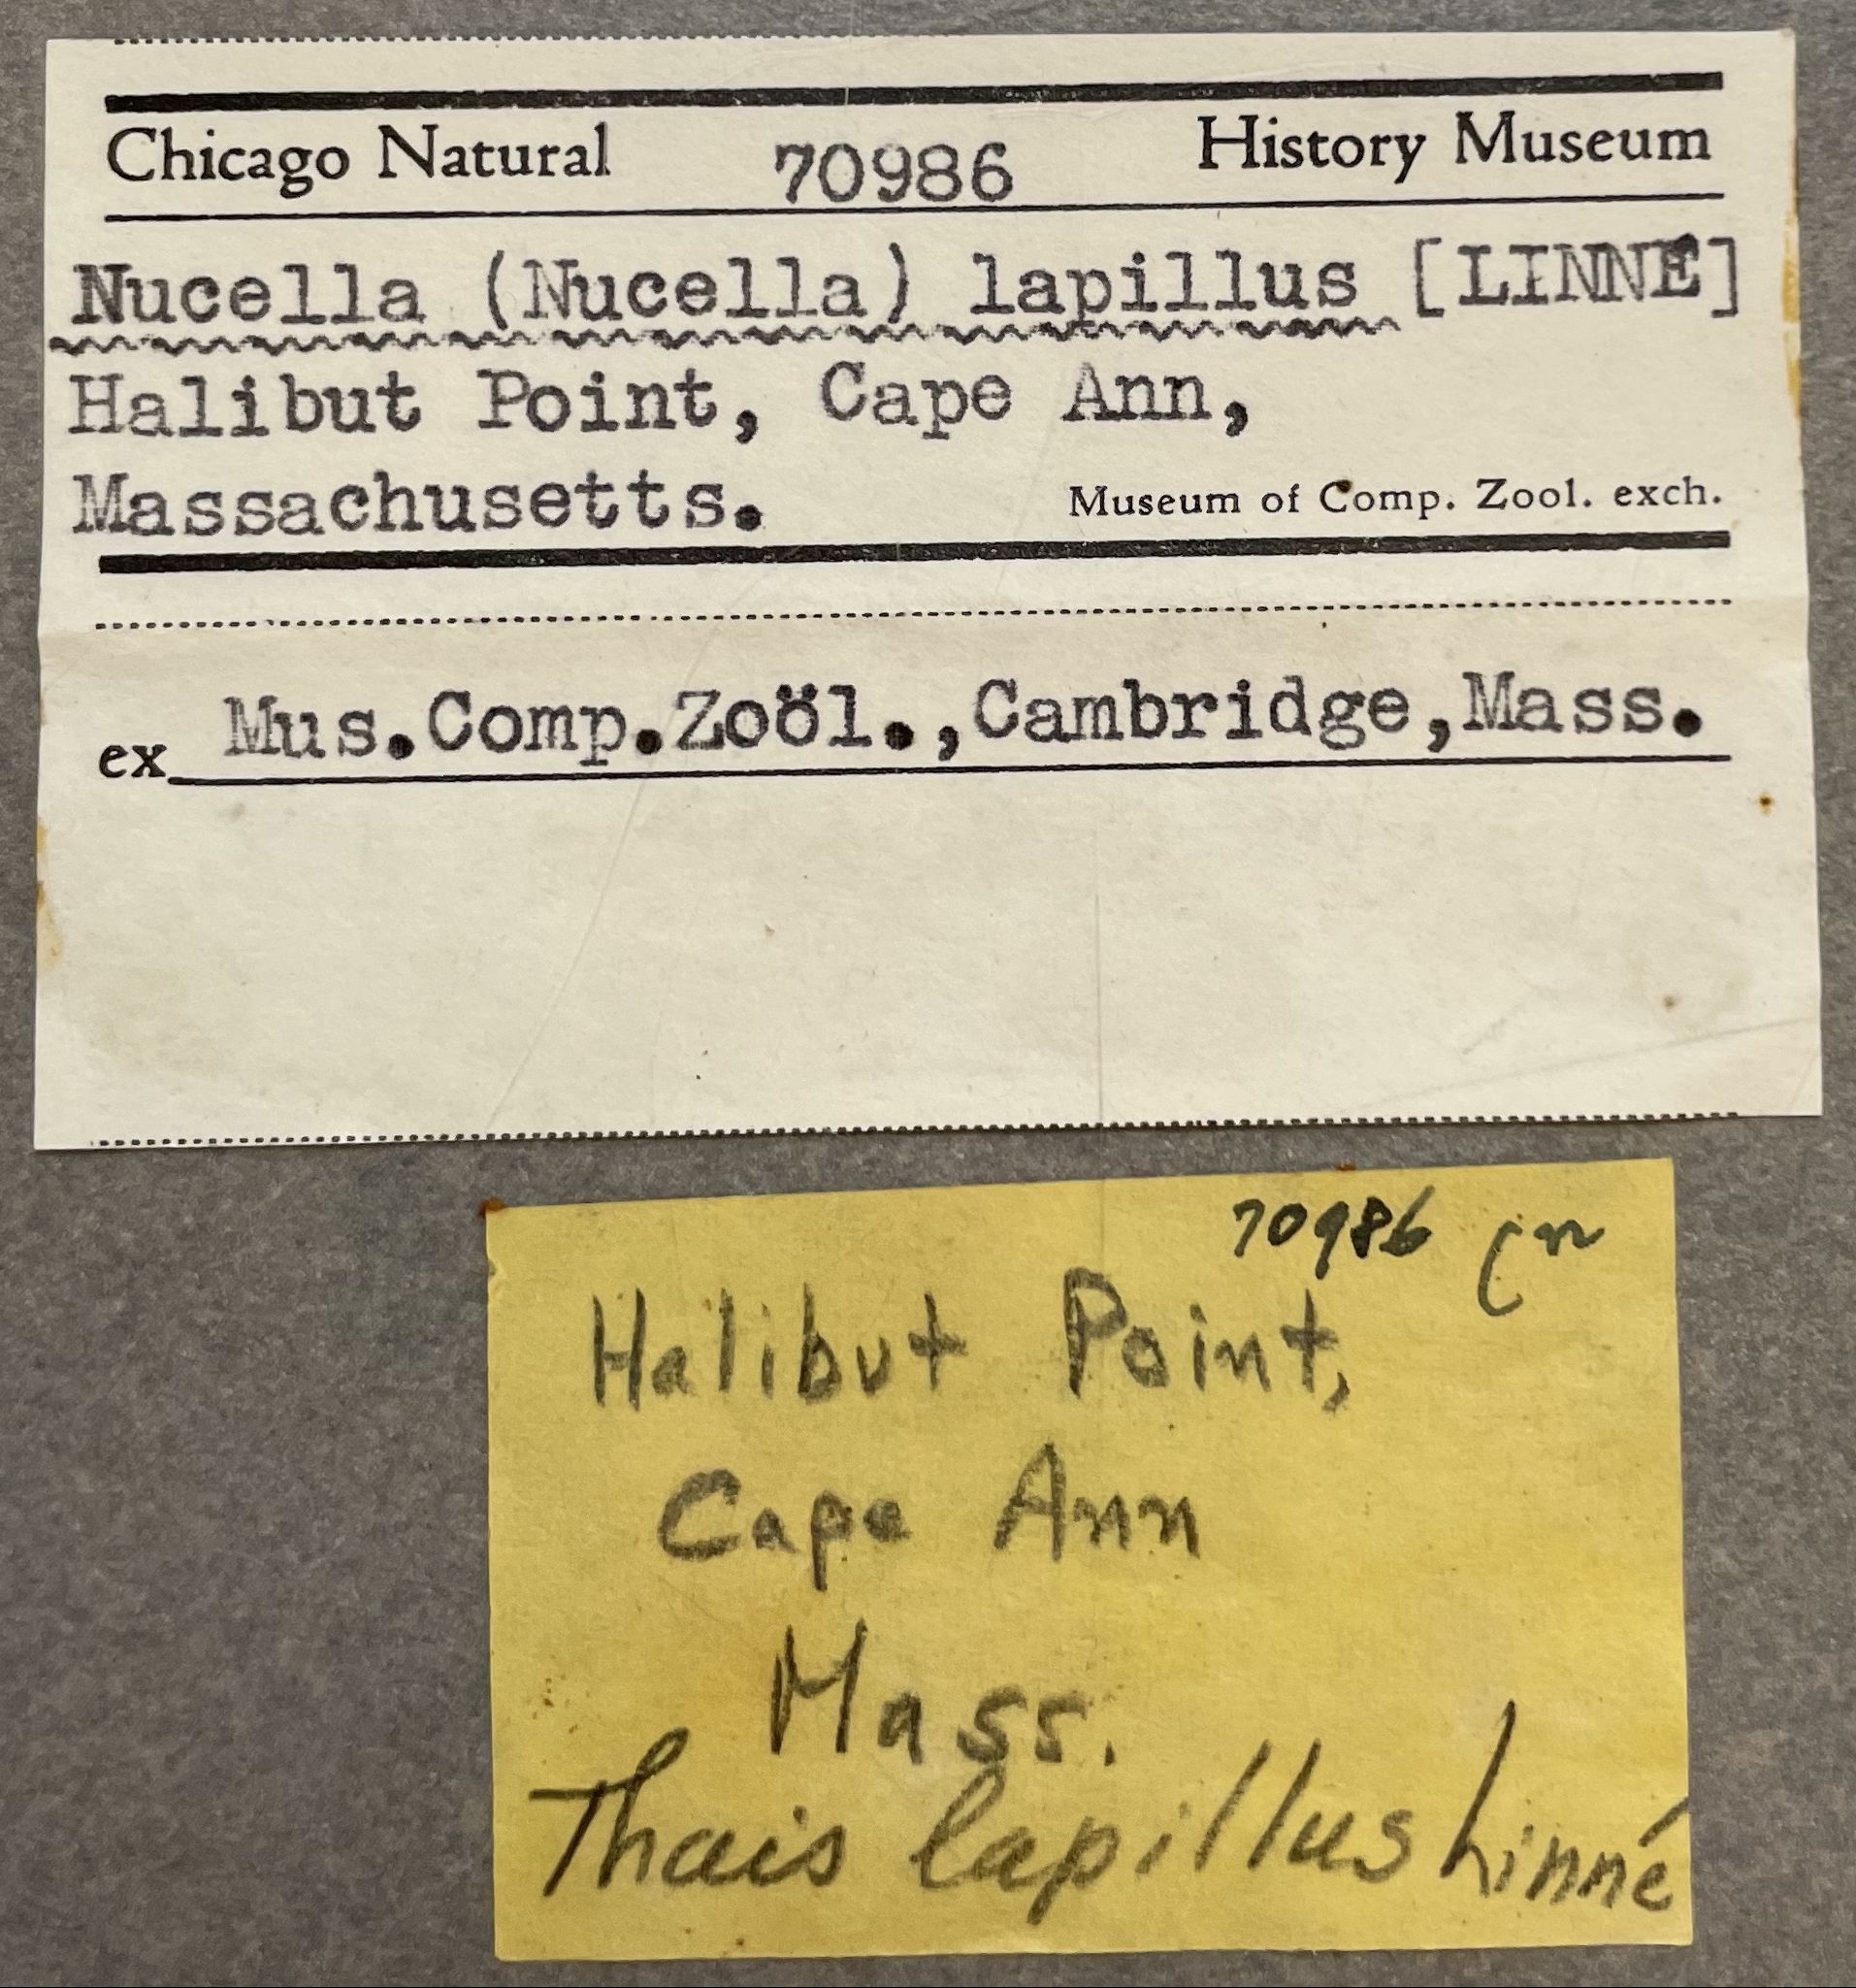 Chicago Natural 70986 History Museum
Nucella (Nucella) lapillus [LINNÉ]
Halibut Point, Cape Ann,
Massachusetts.
Museum of Comp. Zool. exch.
ex Mus.Comp.Zoöl.,Cambridge,Mass.
70986
Halibut Point,
Cape Ann
Mass.
Thais lapillus Linné